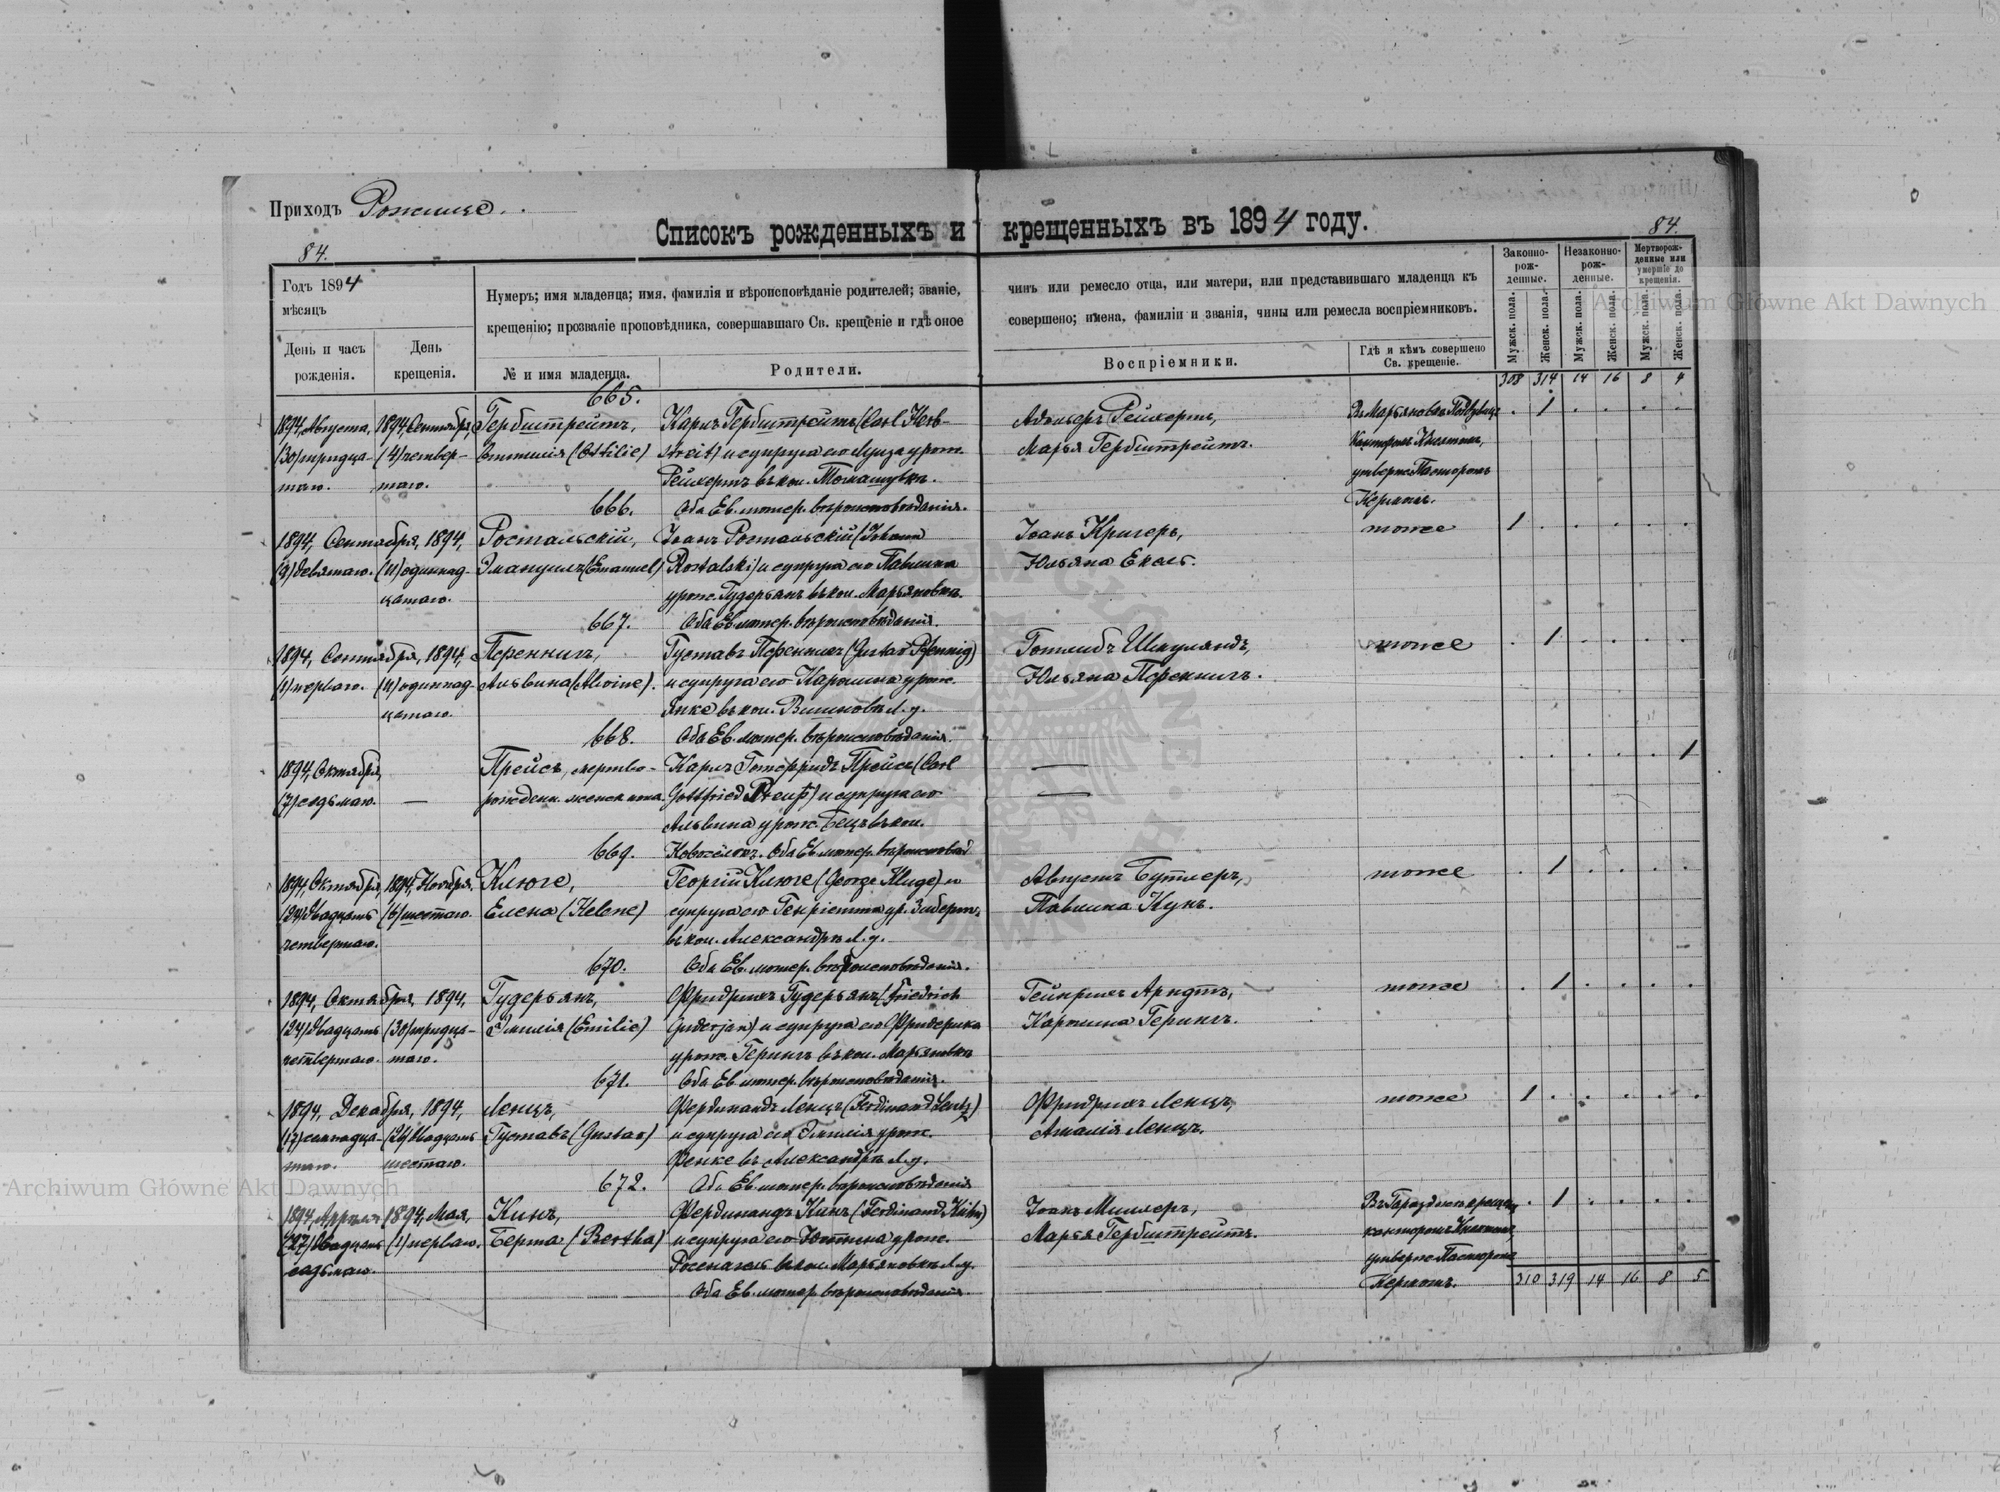 Приходъ Рожище.
Списокъ рожденныхъ и крещенныхъ въ 1894 году.
84.
84.
Годъ 1894
мѣсяцъ
День и часъ рожденія.
День крещенія.
Нумеръ; имя младенца; имя, фамилія и вѣроисповѣданіе родителей; званіе, чинъ или ремесло отца, или матери, или представившаго младенца къ
крещенію; прозваніе проповѣдника, совершавшаго Св. крещеніе и гдѣ оное совершено; имена, фамиліи и званія, чины или ремесла воспріемниковъ.
№ и имя младенца.
Родители.
Воспріемники.
Гдѣ и кѣмъ совершено Св. крещеніе.
Законно-рож-денные.
Незаконно-рож-денные.
Мертворож-денные или умершіе до крещенія.
Мужск. пола.
Женск. пола.
Мужск. пола.
Женск. пола.
Мужск. пола.
Женск. пола.
308 314 14 16 8 4
665.
1894, Августа, 1894, Сентября, Гербштрейтъ, Карлъ Гербштрейтъ (Carl Herb- Адольфъ Рейхертъ, 1
(30) тридца- (4) четвер- Оттилія (Ottilie) streit) и супруга его Луиза урож. Марья Гербштрейтъ. Канторомъ
таго. таго. Рейхертъ въ кол. Томашувкъ. утвержд. Пасторомъ
666. Оба Ев. лютер. вѣроисповѣданія. Керномъ.
1894, Сентября, 1894, Ростальскій, Іоанъ Ростальскій (Johann Іоанъ Кригеръ, тоже 1
(9) девятаго. (11) одиннад- Эмануилъ (Emanuel) Rostalski) и супруга его Павлина Юльяна Екель.
цатаго. урож. Гудерьянъ въ кол. Марьяновкъ.
667. Оба Ев. лютер. вѣроисповѣданія.
1894, Сентября, 1894, Пфеннигъ, Густавъ Пфеннигъ (Gustav Pfennig) Готлибъ тоже 1
(1) перваго. (11) одиннад- Альвина (Alvine). и супруга его Каролина урож. Юльяна Пфеннигъ.
цатаго. Янке въ кол. Л. у.
668. Оба Ев. лютер. вѣроисповѣданія.
1894, Октября, Прейсъ, мертво- Карлъ Готфридъ Прейсъ (Carl — 1
(7) седьмаго. — рожденн. женск. пола. Gottfried Preuß) и супруга его —
Альвина урож. Бецъ въ кол.
669. Оба Ев. лютер. вѣроисповѣд.
1894, Октября, 1894, Ноября, Клюге, Георгій Клюге (George Kluge) и Августъ Бутлеръ, тоже 1
(24) двадцать (6) шестаго. Елена (Helene) супруга его Генріетта ур. Зибертъ, Павлина Кунъ.
четвертаго. въ кол. Александръ Л. у.
670. Оба Ев. лютер. вѣроисповѣданія.
1894, Октября, 1894, Гудерьянъ, Фридрихъ Гудерьянъ (Friedrich Гейнрихъ Арндтъ, тоже 1
(24) двадцать (30) тридца- Эмилія (Emilie) Guderjan) и супруга его Фридерика Каролина Герингъ.
четвертаго. таго. урож. Герингъ въ кол. Марьяновкъ
671. Оба Ев. лютер. вѣроисповѣданія.
1894, Декабря, 1894, Ленцъ, Фердинандъ Ленцъ (Ferdinand Lentz) Фридрихъ Ленцъ, тоже 1
(17) семнадца- (26) двадцать Густавъ (Gustav) и супруга его Эмилія урож. Амалія Ленцъ.
таго. шестаго. Фенке въ Александръ Л. у.
672. Оба Ев. лютер. вѣроисповѣданія
1894, Апрѣля 1894, Мая, Кинъ, Фердинандъ Кинъ (Ferdinand Kühn) Іоанъ Миллеръ, 1
(27) двадцать (1) перваго. Берта (Bertha) и супруга его урож. Марья Гербштрейтъ. канторомъ
седьмаго. въ кол. Марьяновкъ Л. у. утвержд. Пасторомъ
Оба Ев. лютер. вѣроисповѣданія. Керномъ.
310 319 14 16 8 5
Archiwum Główne Akt Dawnych
Archiwum Główne Akt Dawnych